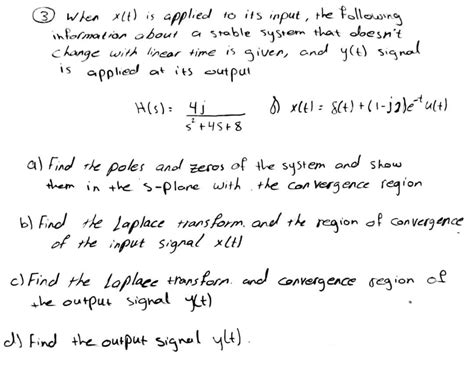 ③ When x(t) is applied to its input, the following
information about a stable system that doesn't
change with linear time is given, and y(t) signal
is applied at its output
H(s) = 4j / s² + 4s + 8   δ) x(t) = δ(t) + (1-j2)e^-t u(t)
a) Find the poles and zeros of the system and show
them in the s-plane with the convergence region
b) Find the Laplace transform. and the region of convergence
of the input signal x(t)
c) Find the Loplace transform. and convergence region of
the output signal y(t)
d) Find the output signal y(t).